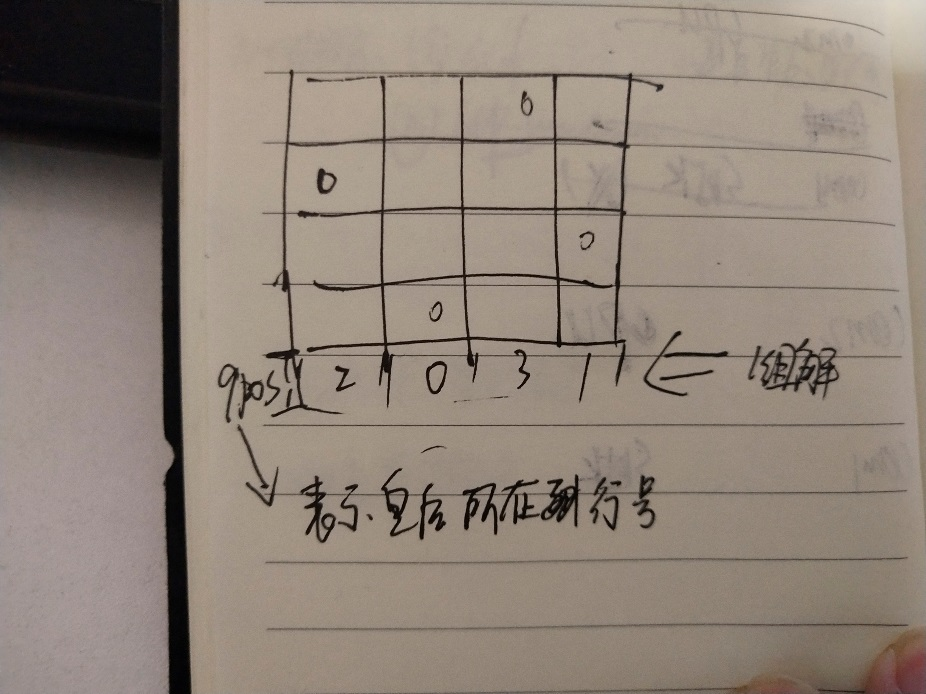 0
0
0
0
qpos[] 2 0 3 1 ⇐ 1组解
表示皇后所在行号